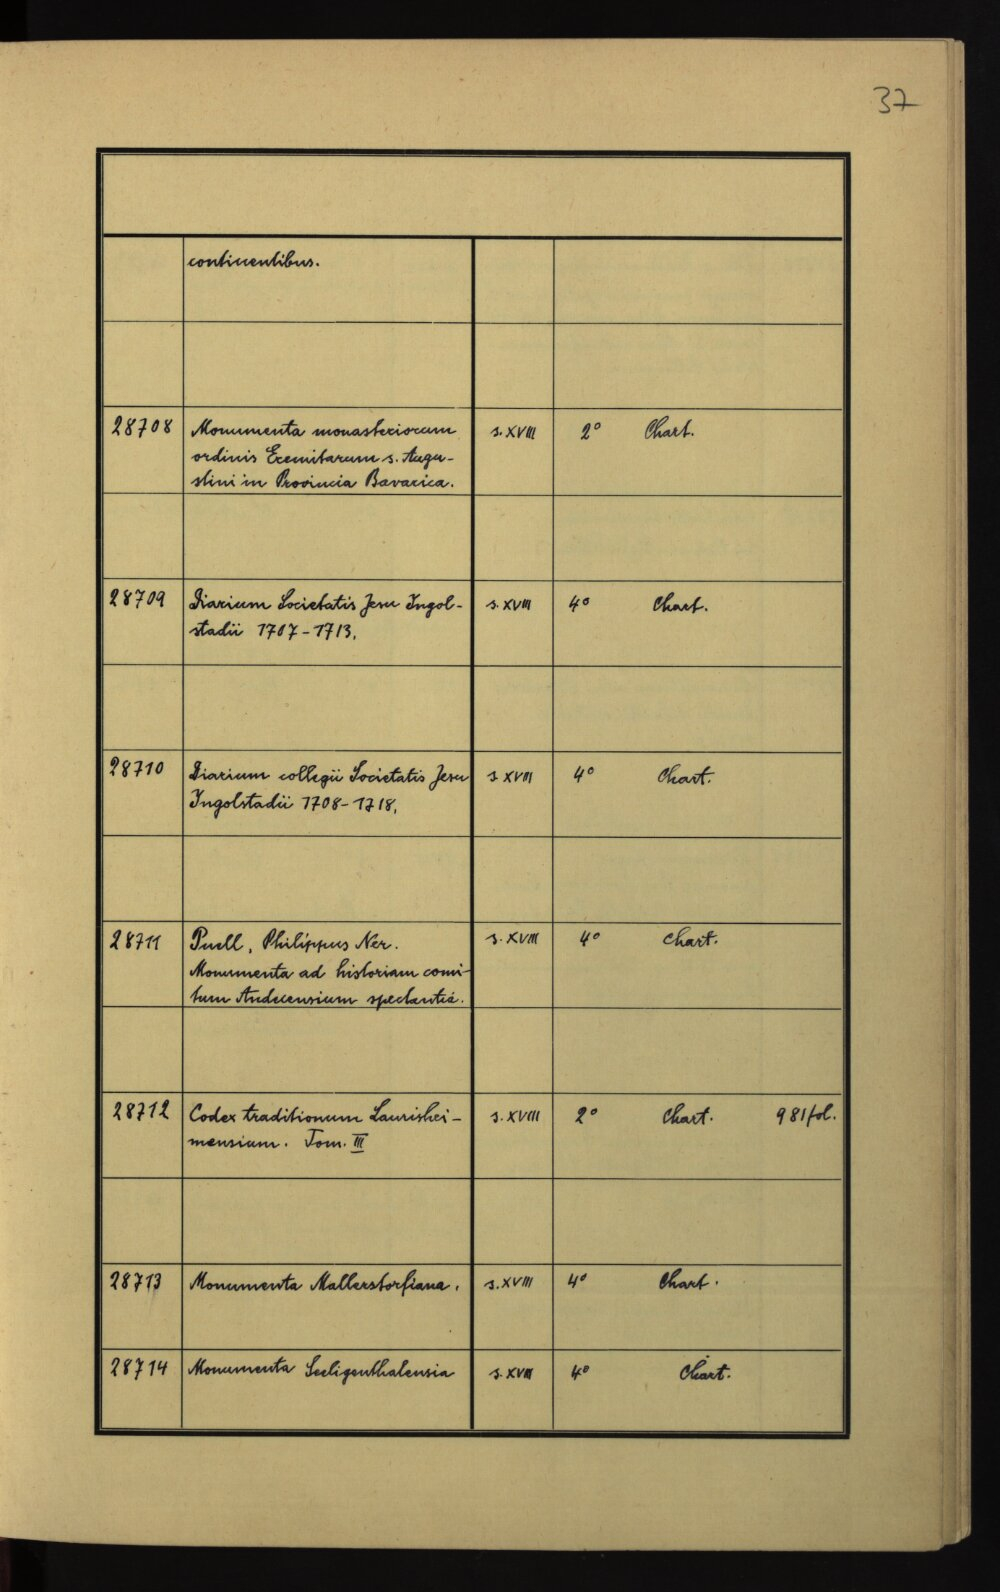 37
continentibus.
28708 Monumenta monasteriorum s. XVIII 2° Chart.
ordinis Eremitarum s. Augu-
stini in Provincia Bavarica.
28709 Diarium Societatis Jesu Ingol- s. XVIII 4° Chart.
stadii 1707-1713.
28710 Diarium collegii Societatis Jesu s XVIII 4° Chart.
Ingolstadii 1708-1718.
28711 Puell, Philippus Ner. s. XVIII 4° Chart.
Monumenta ad historiam comi-
tum Andecensium spectantia.
28712 Codex traditionum Laurishei- s. XVIII 2° Chart. 981 fol.
mensium. Tom. III
28713 Monumenta Mallerstorfiana. s. XVIII 4° Chart.
28714 Monumenta Seeligenthalensia s. XVIII 4° Chart.